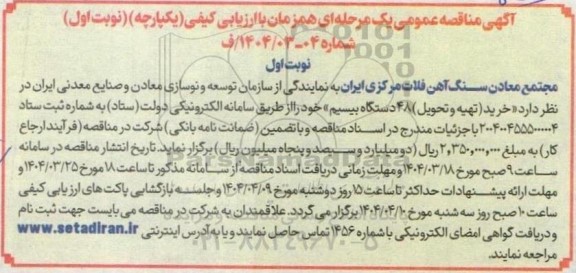 آگهی مناقصه عمومی یک مرحله‌ای همزمان با ارزیابی کیفی (یکپارچه) (نوبت اول)
شماره ۰۴-۱۴۰۴/۰۳/ف
نوبت اول
مجتمع معادن سنگ آهن فلات مرکزی ایران به نمایندگی از سازمان توسعه و نوسازی معادن و صنایع معدنی ایران در
نظر دارد «خرید (تهیه و تحویل) ۴۸ دستگاه بیسیم» خود را از طریق سامانه الکترونیکی دولت (ستاد) به شماره ثبت ستاد
۲۰۰۴۰۰۴۵۵۵۰۰۰۰۰۴ با جزئیات مندرج در اسناد مناقصه و با تضمین (ضمانت نامه بانکی) شرکت در مناقصه (فرآیند ارجاع
کار) به مبلغ ۲,۳۵۰,۰۰۰,۰۰۰ ریال (دو میلیارد و سیصد و پنجاه میلیون ریال) برگزار نماید. تاریخ انتشار مناقصه در سامانه
ساعت ۹ صبح مورخ ۱۴۰۴/۰۳/۱۸ و مهلت زمانی دریافت اسناد مناقصه از سامانه مذکور تا ساعت ۱۸ مورخ ۱۴۰۴/۰۳/۲۵ و
مهلت ارائه پیشنهادات حداکثر تا ساعت ۱۵ روز دوشنبه مورخ ۱۴۰۴/۰۴/۰۹ و جلسه بازگشایی پاکت های ارزیابی کیفی
ساعت ۱۰ صبح روز سه شنبه مورخ ۱۴۰۴/۰۴/۱۰ برگزار می گردد. علاقمندان به شرکت در مناقصه می بایست جهت ثبت نام
و دریافت گواهی امضای الکترونیکی با شماره ۱۴۵۶ تماس حاصل نمایند و یا به آدرس اینترنتی www.setadiran.ir
مراجعه نمایند.
ParsNamadData
۰۲۱-۸۸۳۴۹۶۷۰-۵